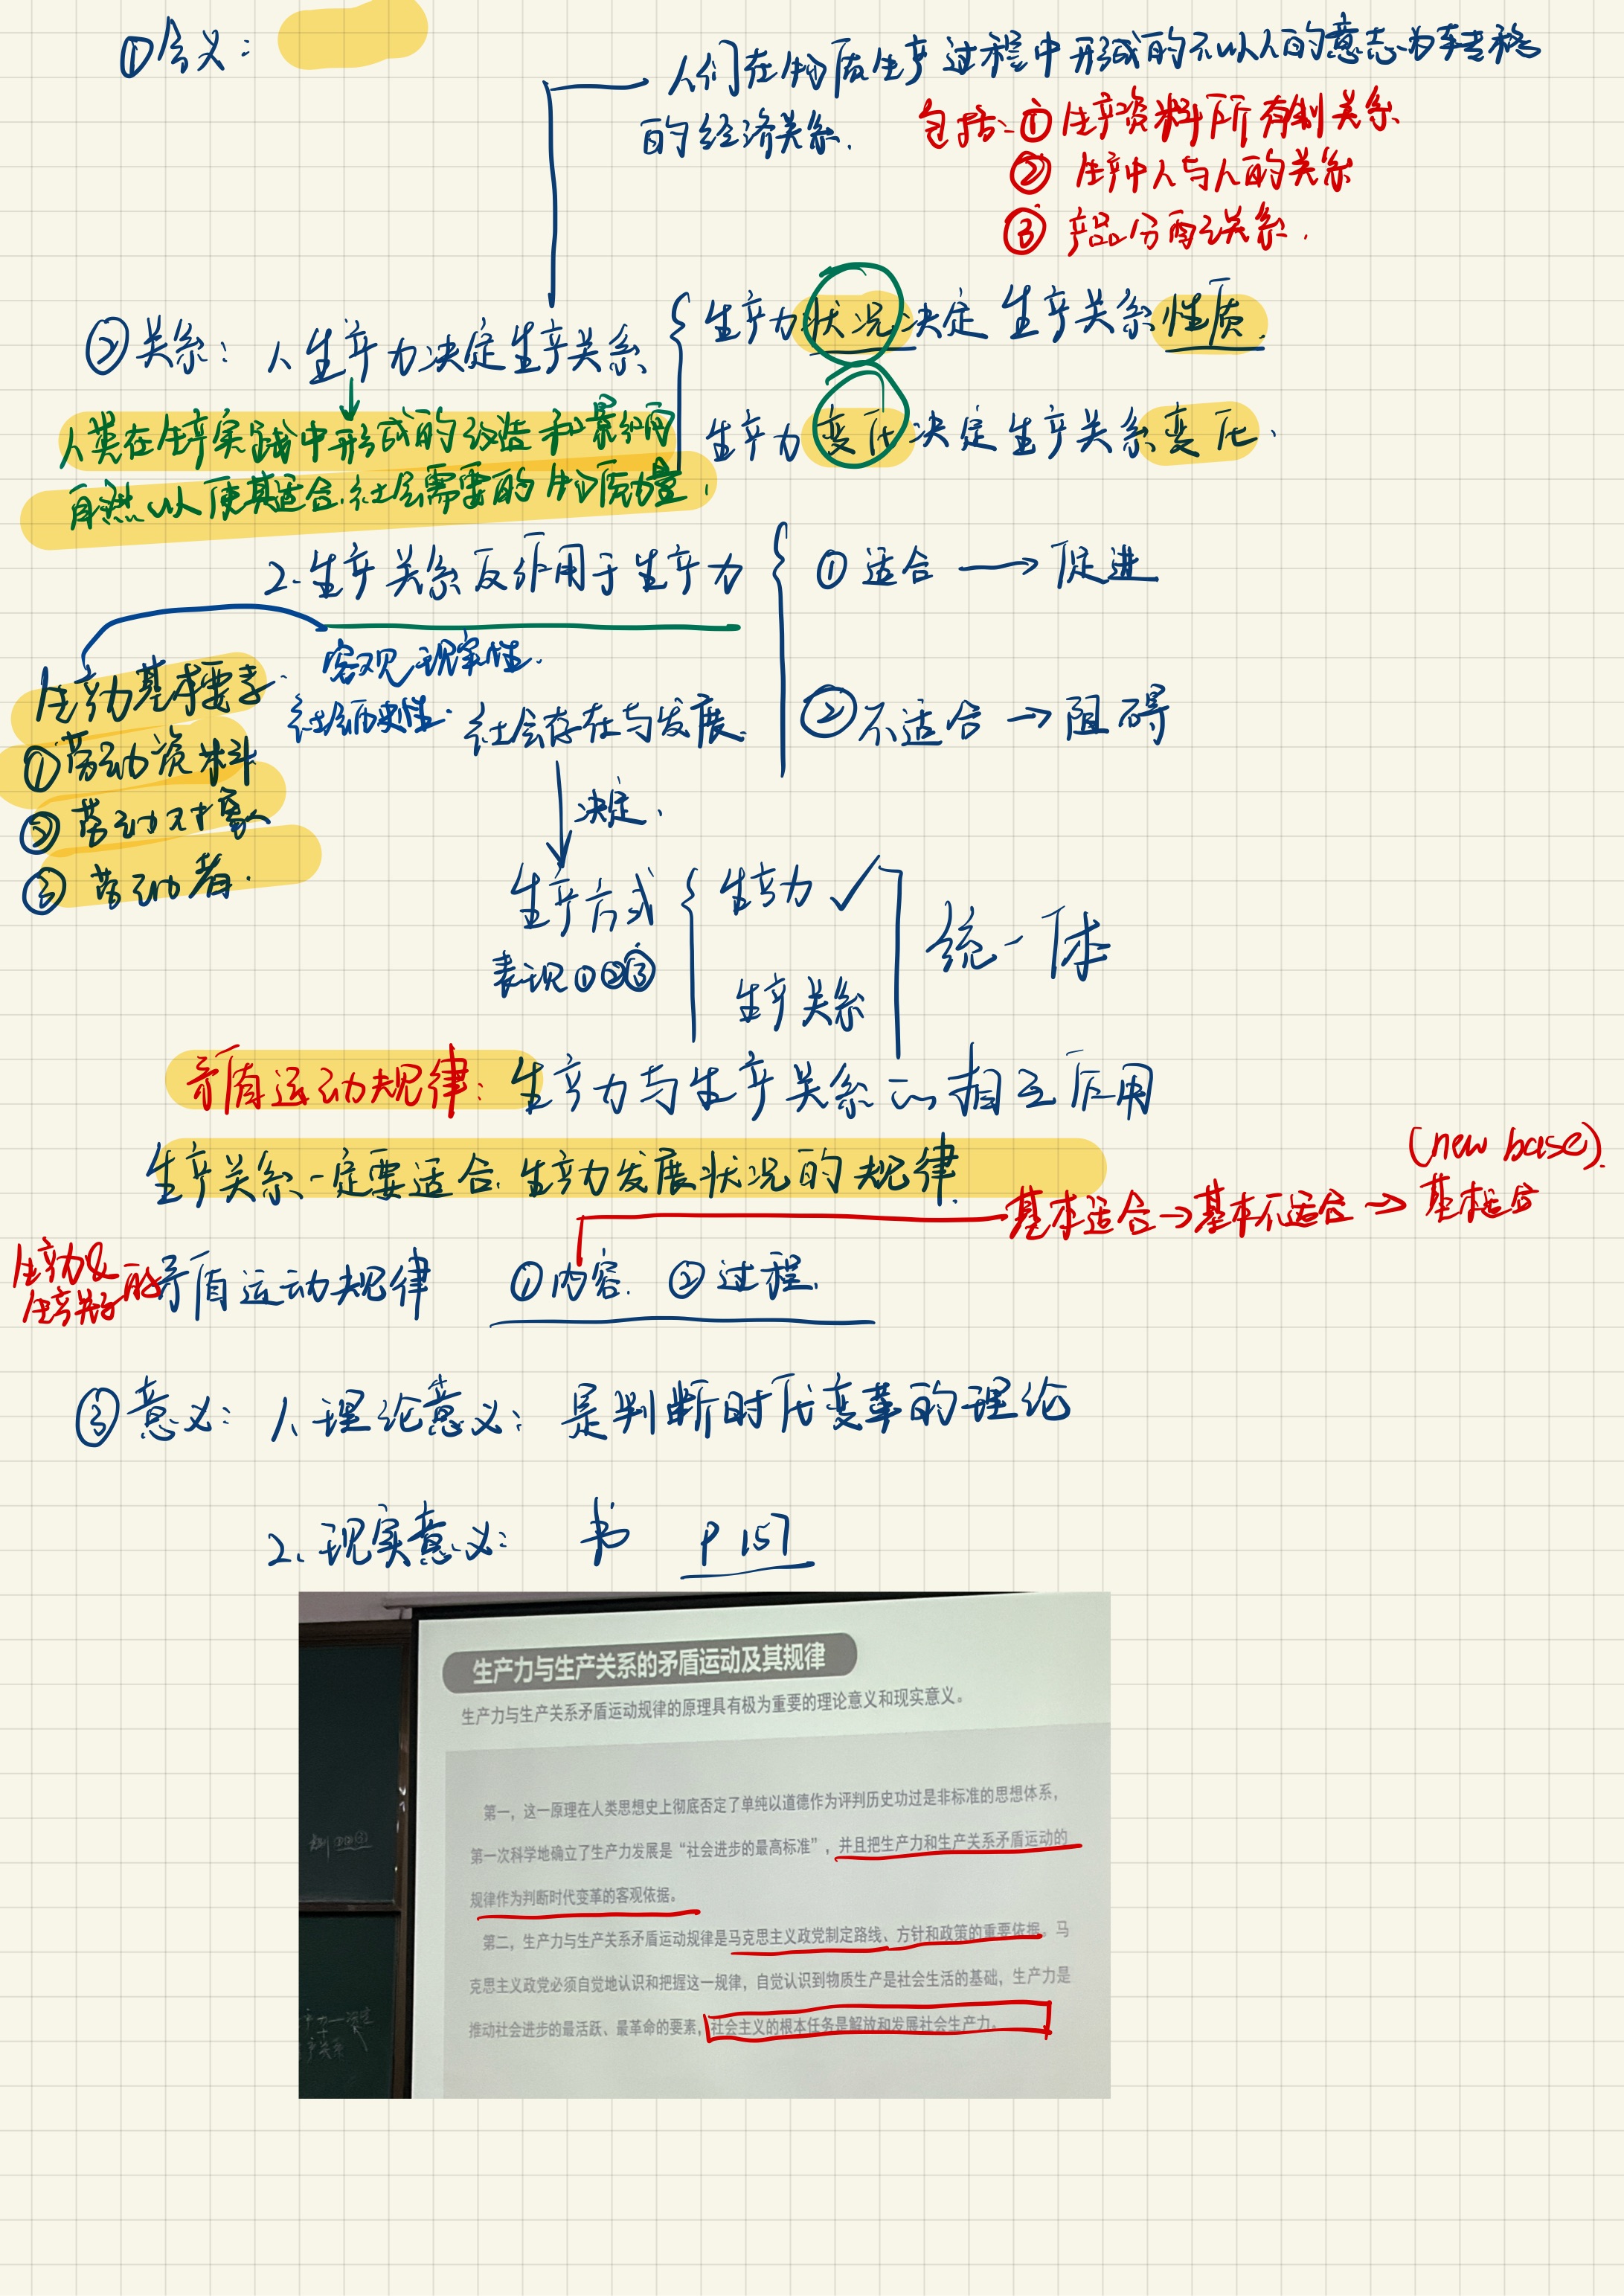 ①含义：
人们在物质生产过程中形成的不以人的意志为转移
的经济关系.
包括：①生产资料所有制关系
② 生产中人与人的关系
③ 产品分配关系.
②关系： 1.生产力决定生产关系
生产力状况决定生产关系性质.
生产力变化决定生产关系变化.
人类在生产实践中形成的改造和影响
自然以使其适合社会需要的物质力量.
2.生产关系反作用于生产力
① 适合 → 促进
② 不适合 → 阻碍
生产力基本要素
①劳动资料
②劳动对象
③劳动者.
客观现实性.
社会历史性.
社会存在与发展.
决定.
生产方式
表现①②③
生产力 ✓
生产关系
统一体
矛盾运动规律：生产力与生产关系的相互作用
生产关系一定要适合生产力发展状况的规律.
基本适合→基本不适合→基本适合
(new base).
生产力&
生产关系的
矛盾运动规律 ①内容. ②过程.
③意义： 1.理论意义：是判断时代变革的理论
2.现实意义： 书 P157
生产力与生产关系的矛盾运动及其规律
生产力与生产关系矛盾运动规律的原理具有极为重要的理论意义和现实意义。
第一，这一原理在人类思想史上彻底否定了单纯以道德作为评判历史功过是非标准的思想体系，
第一次科学地确立了生产力发展是“社会进步的最高标准”，并且把生产力和生产关系矛盾运动的
规律作为判断时代变革的客观依据。
第二，生产力与生产关系矛盾运动规律是马克思主义政党制定路线、方针和政策的重要依据。马
克思主义政党必须自觉地认识和把握这一规律，自觉认识到物质生产是社会生活的基础，生产力是
推动社会进步的最活跃、最革命的要素，社会主义的根本任务是解放和发展社会生产力。